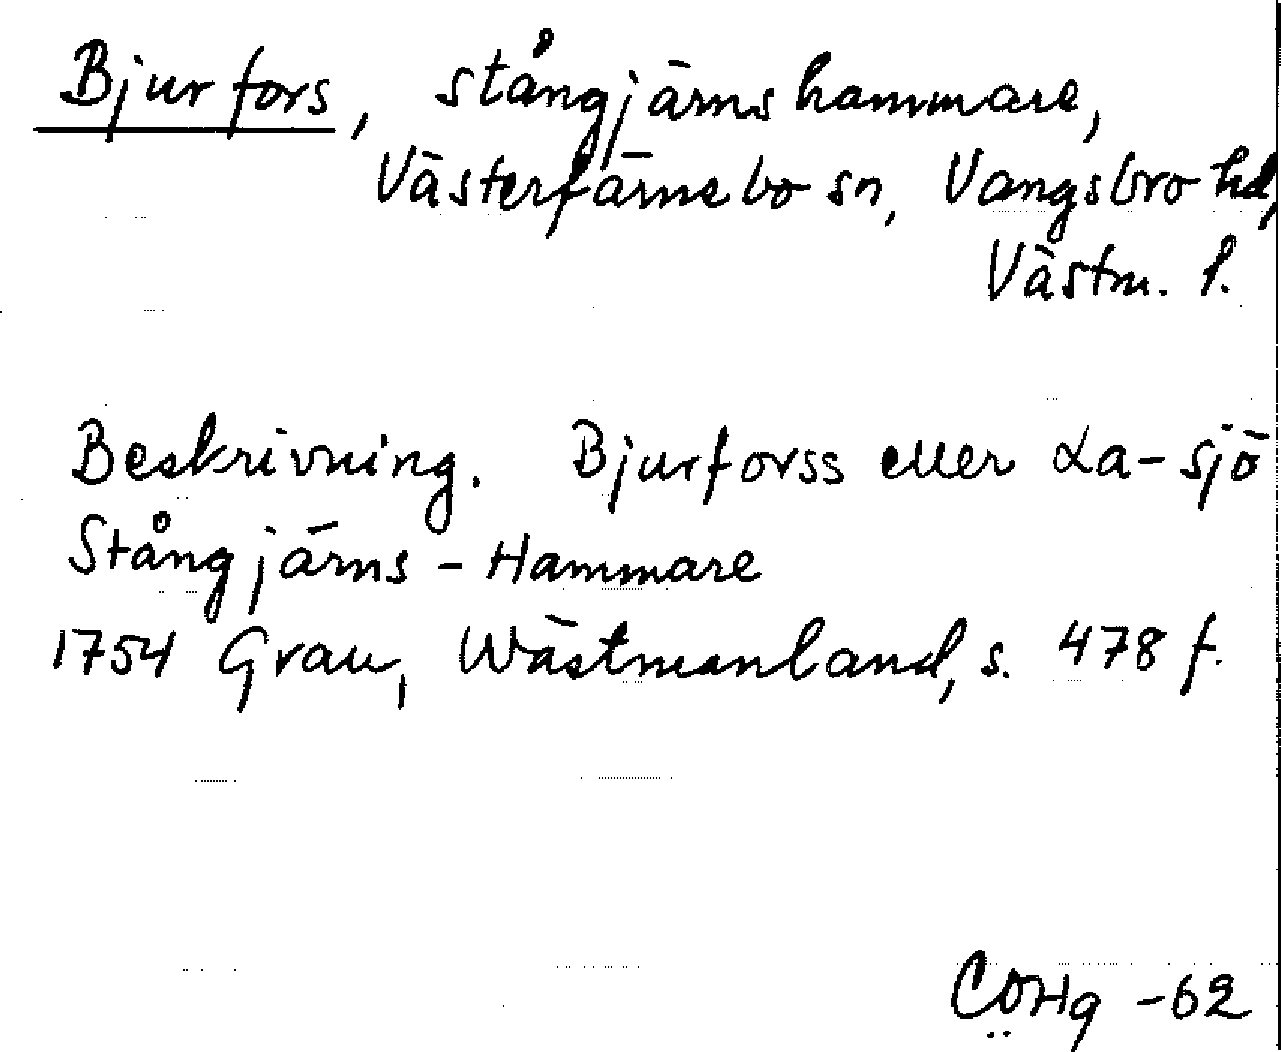 Bjurfors, stångjärnshammare,
Västerfärnebo sn, Vangsbro hd,
Västm. l.
Beskrivning. Bjurforss eller La-sjö
Stångjärns-Hammare
1754 Grau, Wästmanland, s. 478 f.
COHg -62